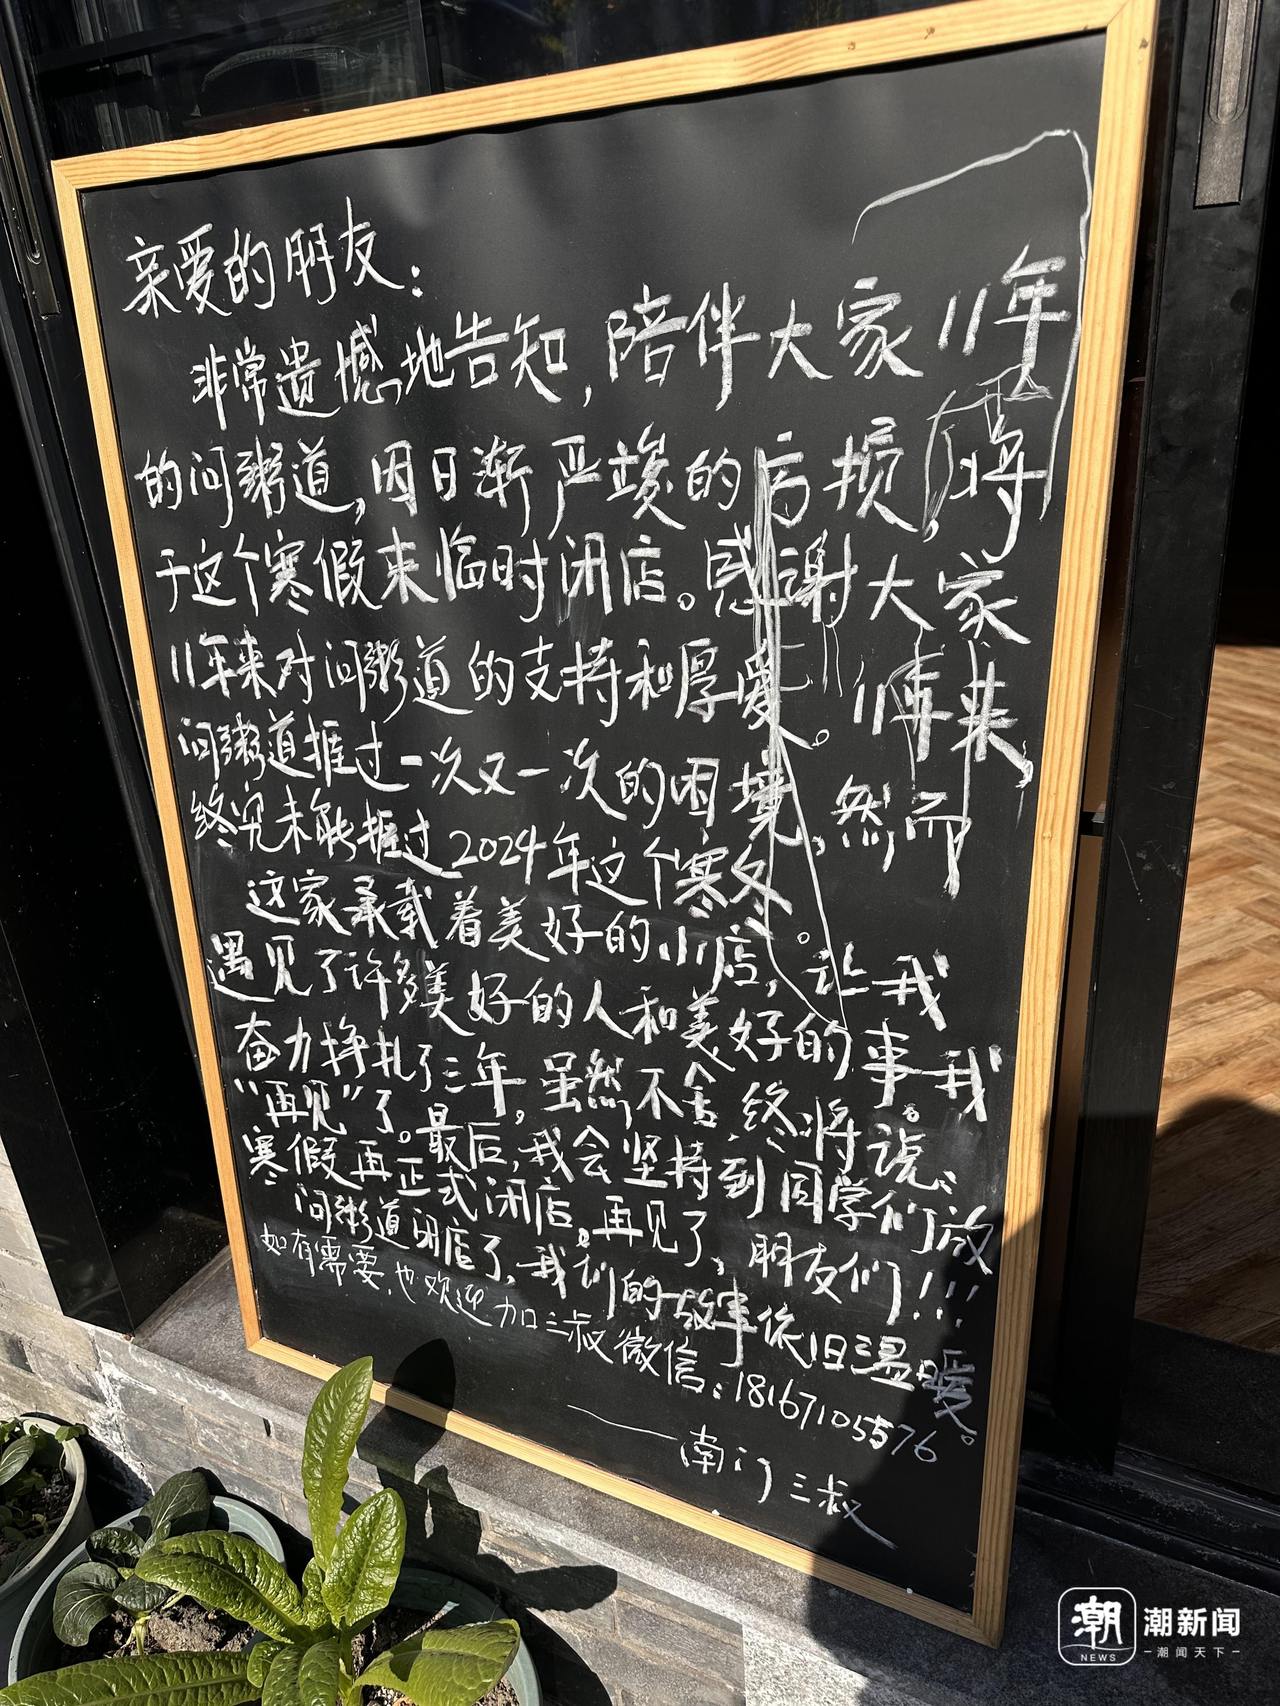 亲爱的朋友：
非常遗憾地告知，陪伴大家11年
的问粥道，因日渐严峻的亏损，将
于这个寒假来临时闭店。感谢大家
11年来对问粥道的支持和厚爱。11年来，
问粥道捱过一次又一次的困境，然而
终究未能捱过2024年这个寒冬。
这家承载着美好的小店，让我
遇见了许多美好的人和美好的事。我
奋力挣扎了三年，虽然不舍，终将说：
“再见”了。最后，我会坚持到同学们放
寒假再正式闭店。再见了，朋友们！！！
问粥道闭店了，我们的故事依旧温暖。
如有需要，也欢迎加三叔微信：18167105576
——南门三叔
潮 NEWS
潮新闻
潮闻天下